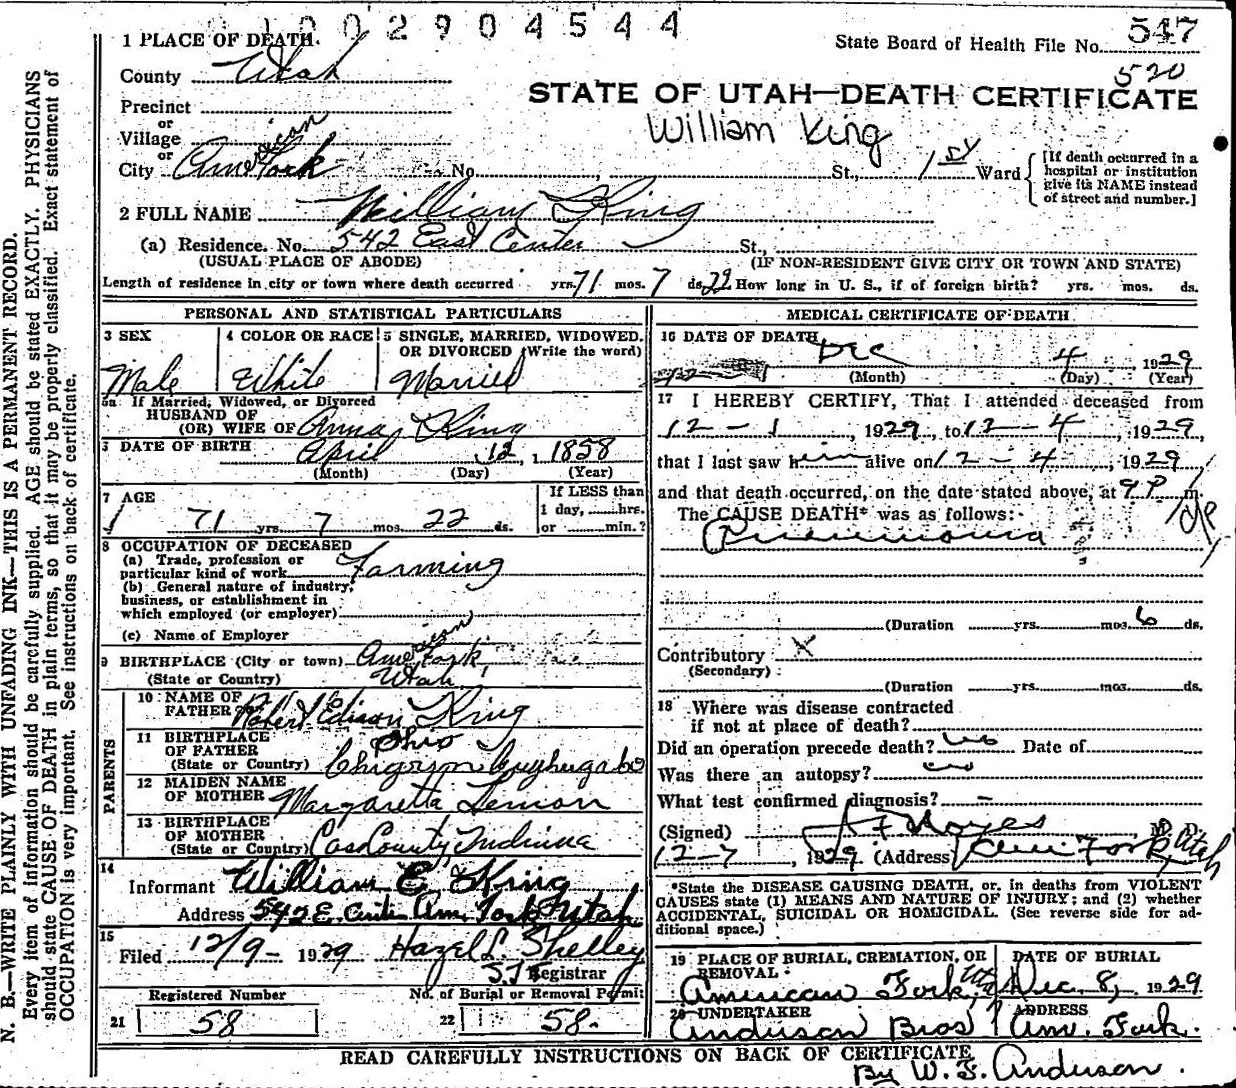 1002904544
547
State Board of Health File No.
520
1 PLACE OF DEATH.
County Utah
STATE OF UTAH—DEATH CERTIFICATE
Precinct
or
William King
Village
or
City American Fork No. St., 1st Ward
[If death occurred in a hospital or institution give its NAME instead of street and number.]
2 FULL NAME William King
(a) Residence. No. 542 East Center St.,
(USUAL PLACE OF ABODE) (IF NON-RESIDENT GIVE CITY OR TOWN AND STATE)
Length of residence in city or town where death occurred yrs. 71 mos. 7 ds. 22 How long in U. S., if of foreign birth? yrs. mos. ds.
PERSONAL AND STATISTICAL PARTICULARS
3 SEX 4 COLOR OR RACE 5 SINGLE, MARRIED, WIDOWED, OR DIVORCED (Write the word)
Male White Married
5a If Married, Widowed, or Divorced
HUSBAND OF
(OR) WIFE OF Anna King
DATE OF BIRTH April 12, 1858
(Month) (Day) (Year)
7 AGE If LESS than
1 day, hrs.
71 yrs. 7 mos. 22 ds. or min.?
8 OCCUPATION OF DECEASED
(a) Trade, profession or
particular kind of work Farming
(b) General nature of industry,
business, or establishment in
which employed (or employer)
(c) Name of Employer
9 BIRTHPLACE (City or town) American Fork,
(State or Country) Utah
PARENTS
10 NAME OF
FATHER Robert Edison King
11 BIRTHPLACE Ohio
OF FATHER
(State or Country)
12 MAIDEN NAME
OF MOTHER Margaretta Lemon
13 BIRTHPLACE
OF MOTHER
(State or Country) Cass County, Indiana
14
Informant William E King
Address 542 E. Center Am. Fork Utah
15
Filed 12/9- 1929 Hazel L Shelley
Registrar
Registered Number No. of Burial or Removal Permit
21 58 22 58.
MEDICAL CERTIFICATE OF DEATH
16 DATE OF DEATH
Dec 4 1929
(Month) (Day) (Year)
17 I HEREBY CERTIFY, That I attended deceased from
12-1, 1929, to 12-4, 1929,
that I last saw him alive on 12-4, 1929
and that death occurred, on the date stated above, at 9 P m.
The CAUSE DEATH* was as follows:
Pneumonia
(Duration yrs. mos. 6 ds.
Contributory X
(Secondary)
(Duration yrs. mos. ds.
18 Where was disease contracted
if not at place of death?
Did an operation precede death? no Date of
Was there an autopsy? no
What test confirmed diagnosis? —
(Signed) Noyes M. D.
12-7, 1929 (Address) Am Fork, Utah
*State the DISEASE CAUSING DEATH, or, in deaths from VIOLENT
CAUSES state (1) MEANS AND NATURE OF INJURY; and (2) whether
ACCIDENTAL, SUICIDAL OR HOMICIDAL. (See reverse side for ad-
ditional space.)
19 PLACE OF BURIAL, CREMATION, OR REMOVAL DATE OF BURIAL
American Fork, Utah Dec. 8, 1929
20 UNDERTAKER ADDRESS
Anderson Bros Am. Fork.
READ CAREFULLY INSTRUCTIONS ON BACK OF CERTIFICATE
By W. F. Anderson.
N. B.—WRITE PLAINLY WITH UNFADING INK—THIS IS A PERMANENT RECORD.
Every item of information should be carefully supplied. AGE should be stated EXACTLY. PHYSICIANS
should state CAUSE OF DEATH in plain terms, so that it may be properly classified. Exact statement of
OCCUPATION is very important. See instructions on back of certificate.